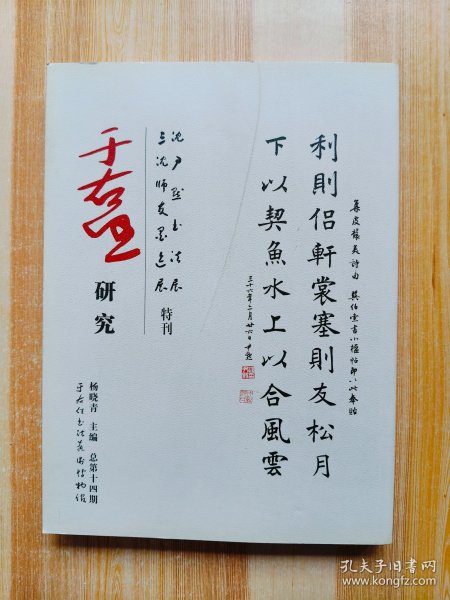 于右任
研究
沈尹默书法展
三沈师友墨迹展 特刊
利則侶軒裳塞則友松月
下以契魚水上以合風雲
三十六年二月廿六日尹默
杨晓青 主编 总第十四期
于右任书法艺术博物馆
孔夫子旧书网
www.kongfz.com